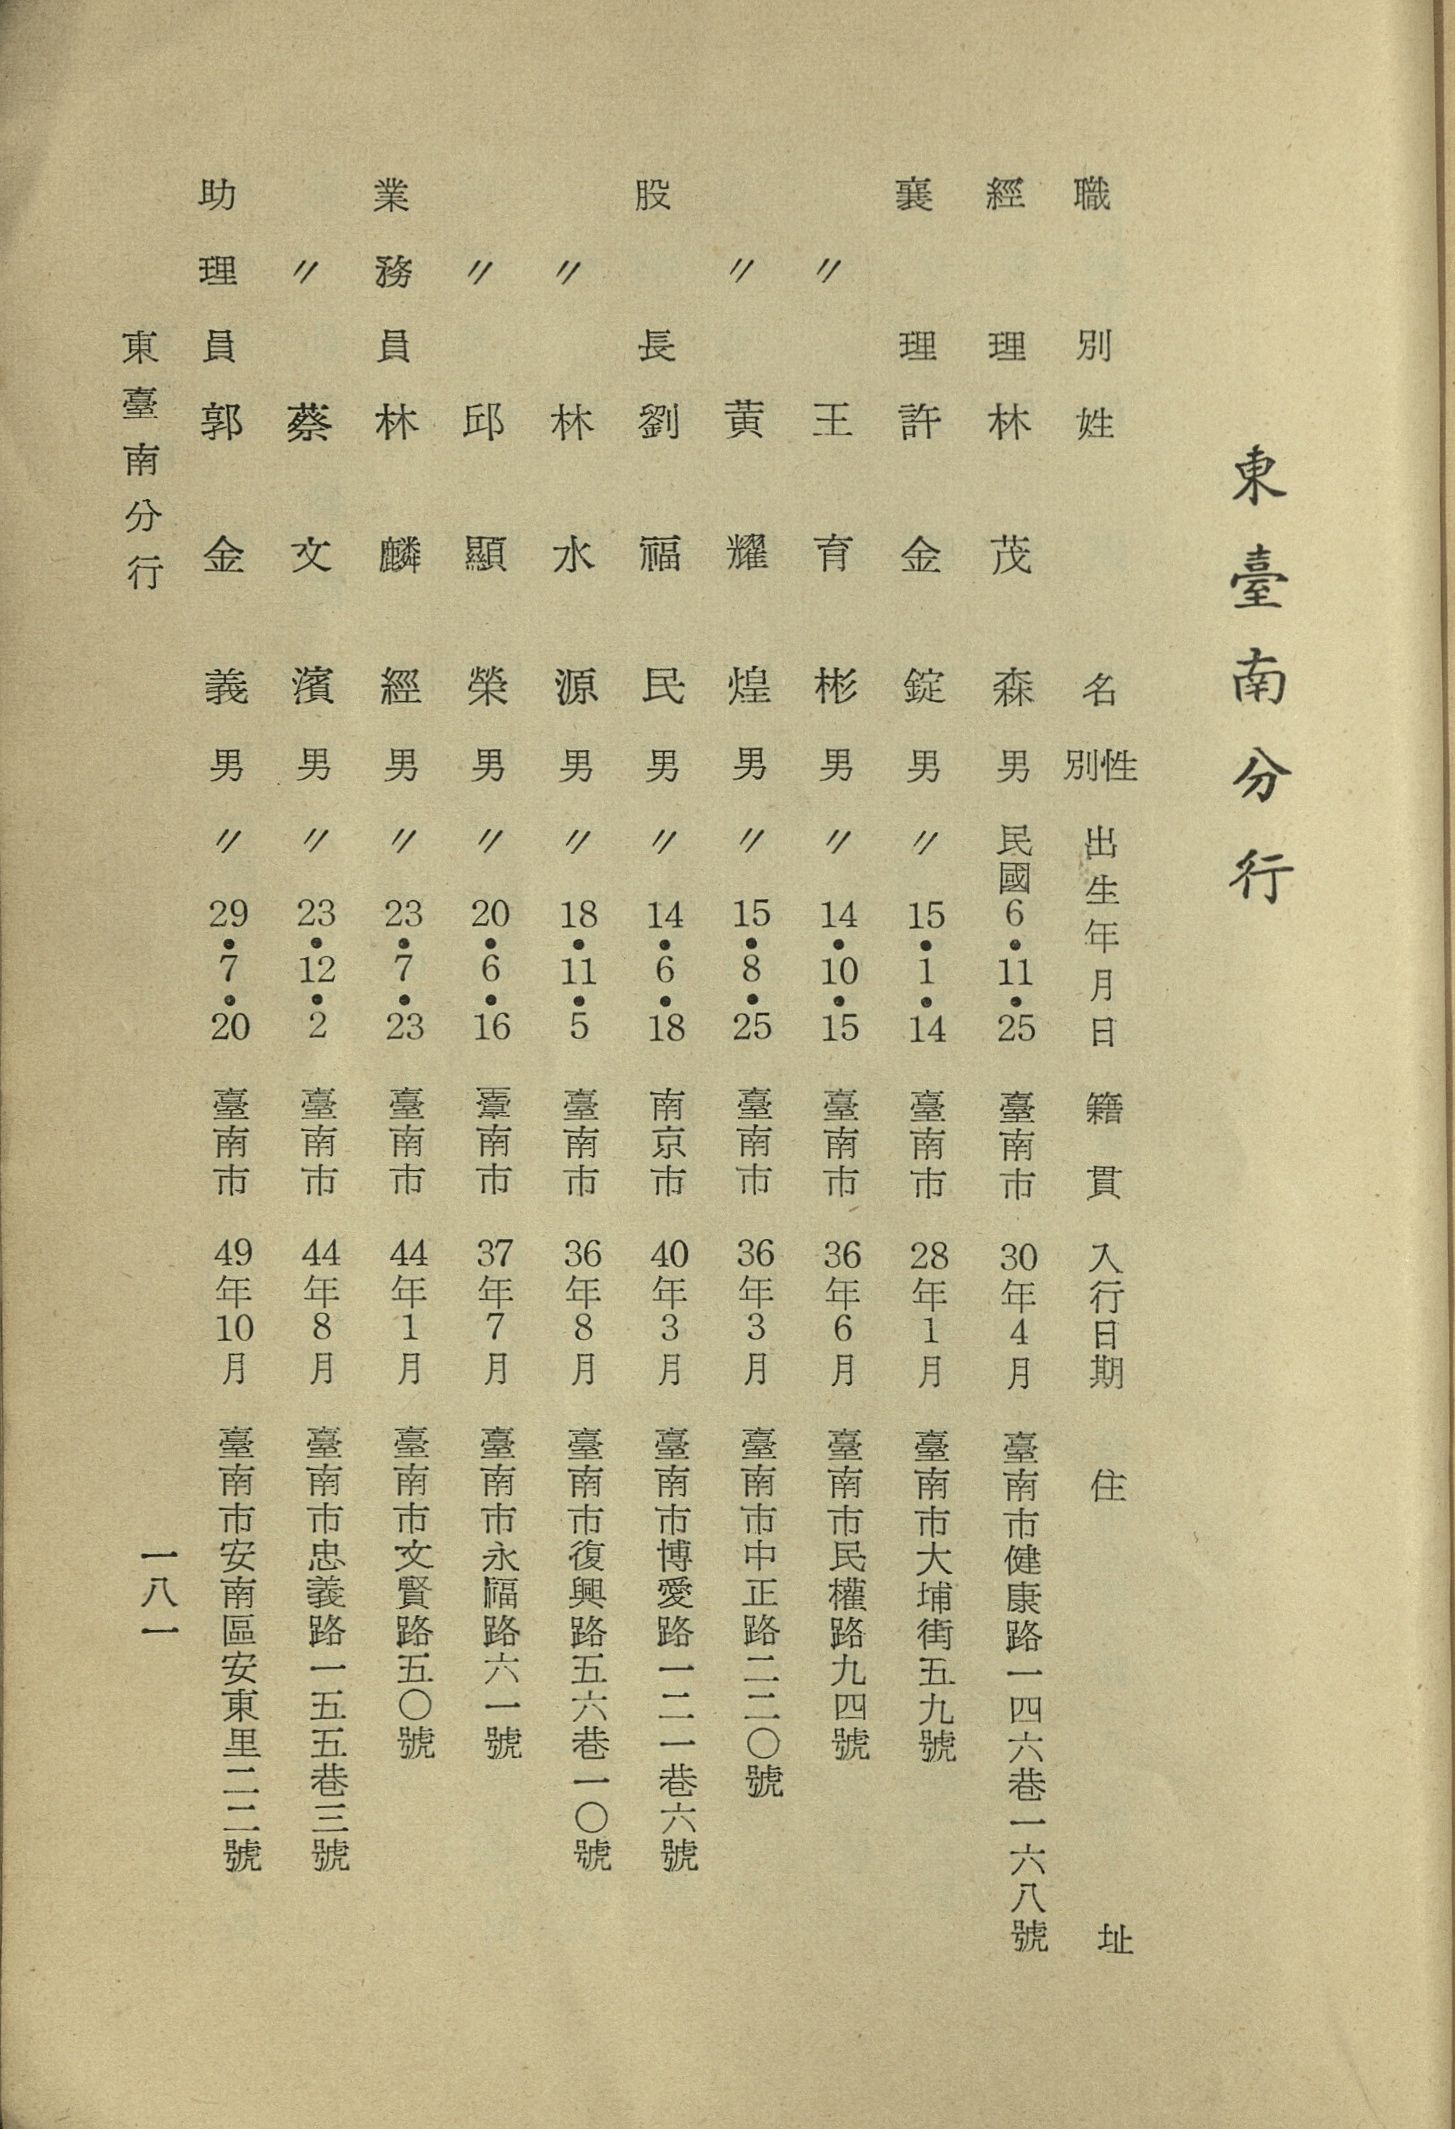 東臺南分行
職別 姓名 性別 出生年月日 籍貫 入行日期 住址
經理 林茂森 男 民國6•11•25 臺南市 30年4月 臺南市健康路一四六巷一六八號
襄理 許金錠 男 〃 15•1•14 臺南市 28年1月 臺南市大埔街五九號
〃 王育彬 男 〃 14•10•15 臺南市 36年6月 臺南市民權路九四號
〃 黃耀煌 男 〃 15•8•25 臺南市 36年3月 臺南市中正路二二〇號
股長 劉福民 男 〃 14•6•18 南京市 40年3月 臺南市博愛路一二一巷六號
〃 林水源 男 〃 18•11•5 臺南市 36年8月 臺南市復興路五六巷一〇號
〃 邱顯榮 男 〃 20•6•16 臺南市 37年7月 臺南市永福路六一號
業務員 林麟經 男 〃 23•7•23 臺南市 44年1月 臺南市文賢路五〇號
〃 蔡文濱 男 〃 23•12•2 臺南市 44年8月 臺南市忠義路一五五巷三號
助理員 郭金義 男 〃 29•7•20 臺南市 49年10月 臺南市安南區安東里二二號
東臺南分行
一八一